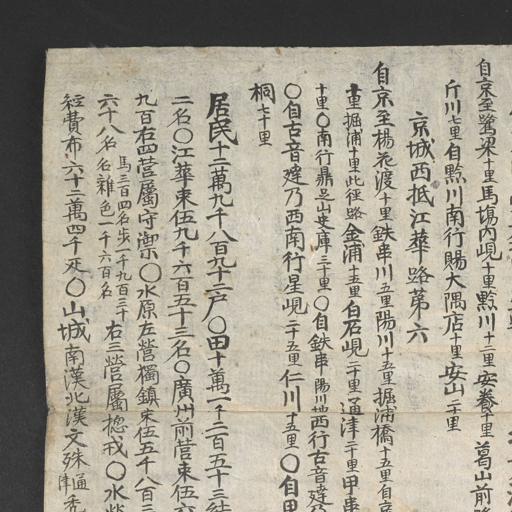 自京至鷺梁十里馬場內峴十里黔川十二里安養十里葛山前
斤川七里自黔川南行賜大隅店十里安山二十里
京城西抵江華路第六
自京至楊花渡十里鉄串川五里陽川十五里掘浦橋十五里自京
掘浦十里此徑路金浦十五里白石峴二十里通津二十里甲串
十里〇南行鼎足山史庫三十里〇自鉄串陽川地西行古音達乃
〇自古音達乃西南行星峴二十五里仁川十五里〇自甲
桐七十里
居民十二萬九千八百九十二户〇田十萬一千二百五十三結
二名〇江華束伍九千六百五十三名〇廣州前營束伍六
九百右四營屬守禦〇水原左營獨鎮束伍五千八百三
六十八名名雜色一千六百名馬三百四名步一千九百三十右三營屬摠戎〇水
經費布六十二萬四千疋〇山城南漢北漢文殊通津禿